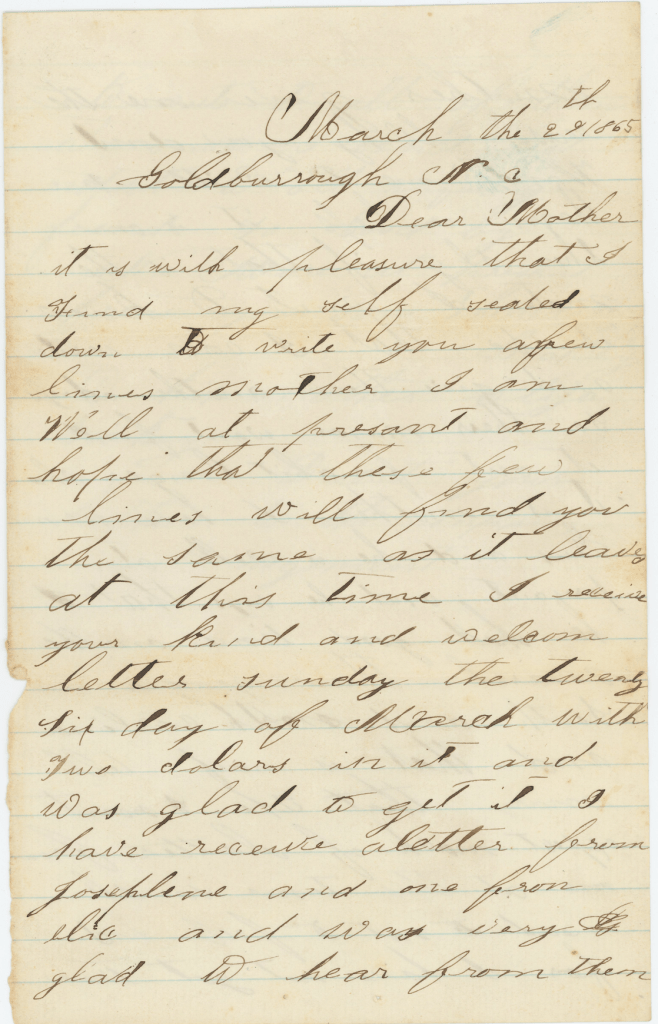 March the 29th 1865
Goldburrough N. C
Dear Mother
it is with pleasure that I
Find my self seated
down to write you afew
lines mother I am
Well at presant and
hope that these few
lines will find you
the same as it leaves
at this time I receive
your kind and welcom
letter sunday the twenty
six day of March with
Two dolars in it and
was glad to get it I
have receive aletter from
Josephene and one fron
elic and was very
glad to hear from them